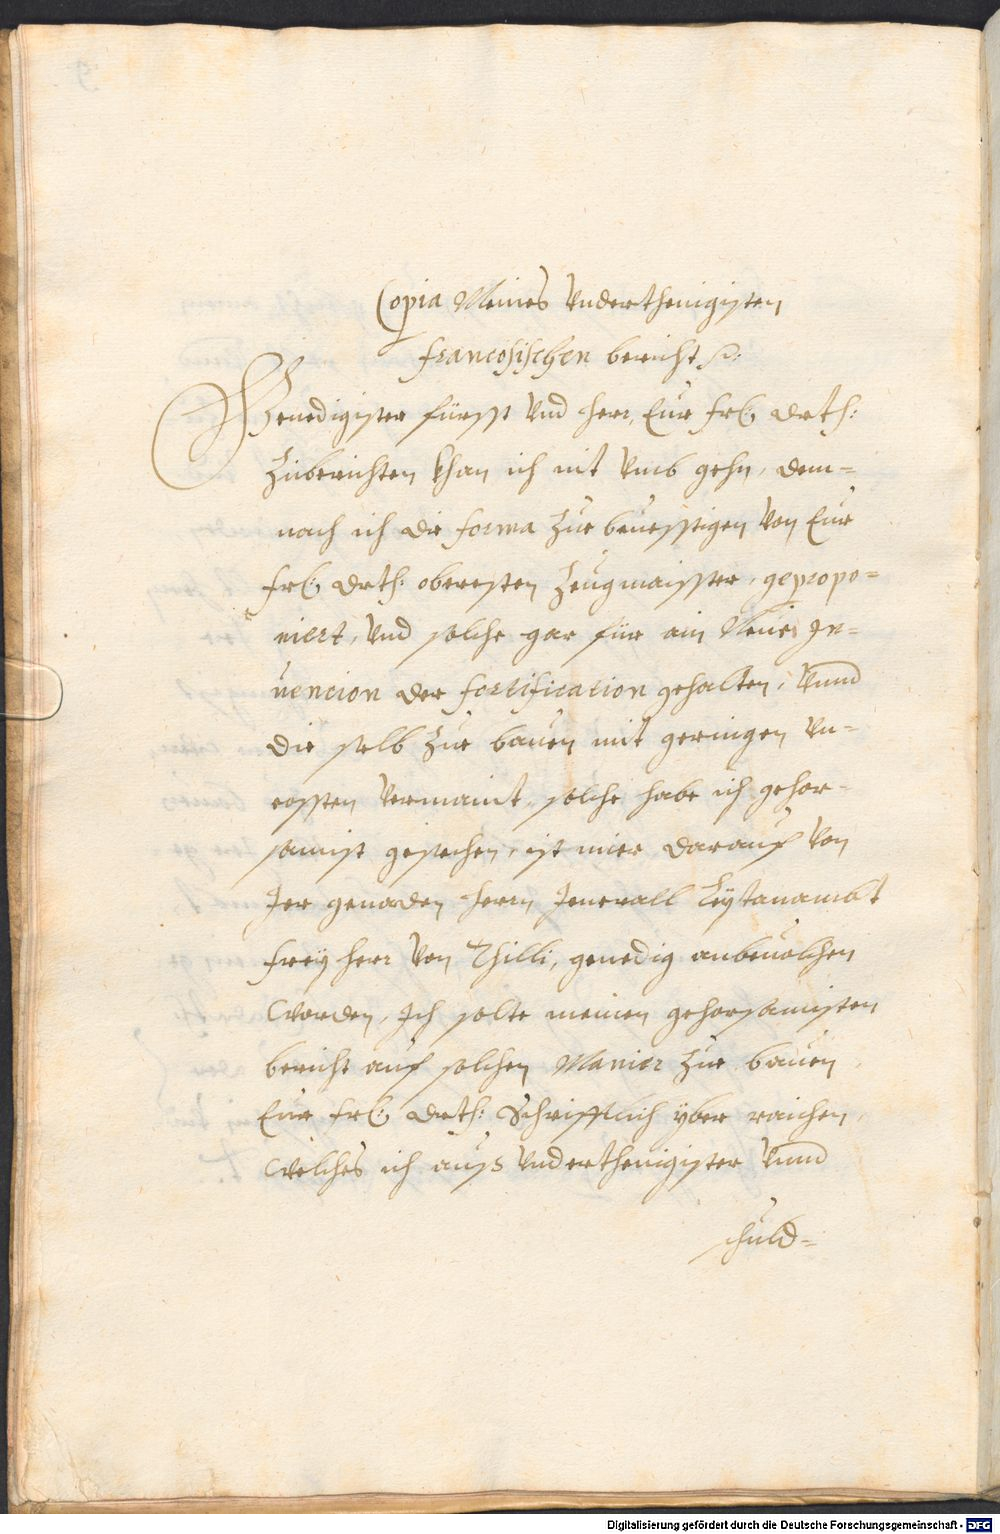 Copia Meines Underthenigisten
francosischen bericht
Genedigister fürsst Und herr, Eur frl: drth:
Zuberichten khan ich nit Umb gehn, dem=
nach ich die forma Zur beuesstigen Von Eur
frl: drth: obersten Zeugmaisster, gepropo=
niert, Und solche gar für ain Neue In=
uencion der fortification gehalten, Unnd
die selb Zur bauen mit geringen Un=
cossten Vermaint, solche habe ich gehor=
samist gesechen, ist mier darauf Von
Irer genaden herrn Jenerall Leytanambt
frey herr Von Thilli, genedig anbeuolchen
worden, Ich solte meinen gehorsamisten
bericht auf solchen Manier Zur bauen
Eur frl: drth: Schrifftlich yber raichen,
welches ich auss Underthenigister Unnd
schuld=
Digitalisierung gefördert durch die Deutsche Forschungsgemeinschaft - DFG